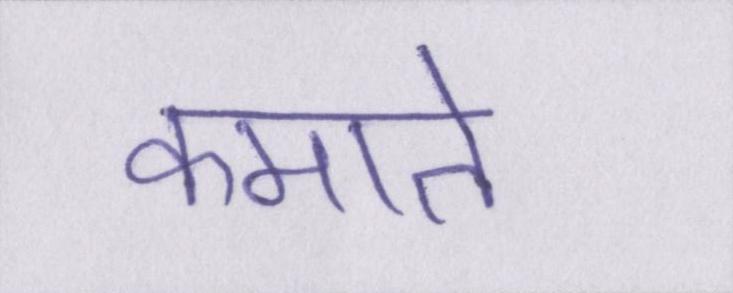 कमाते